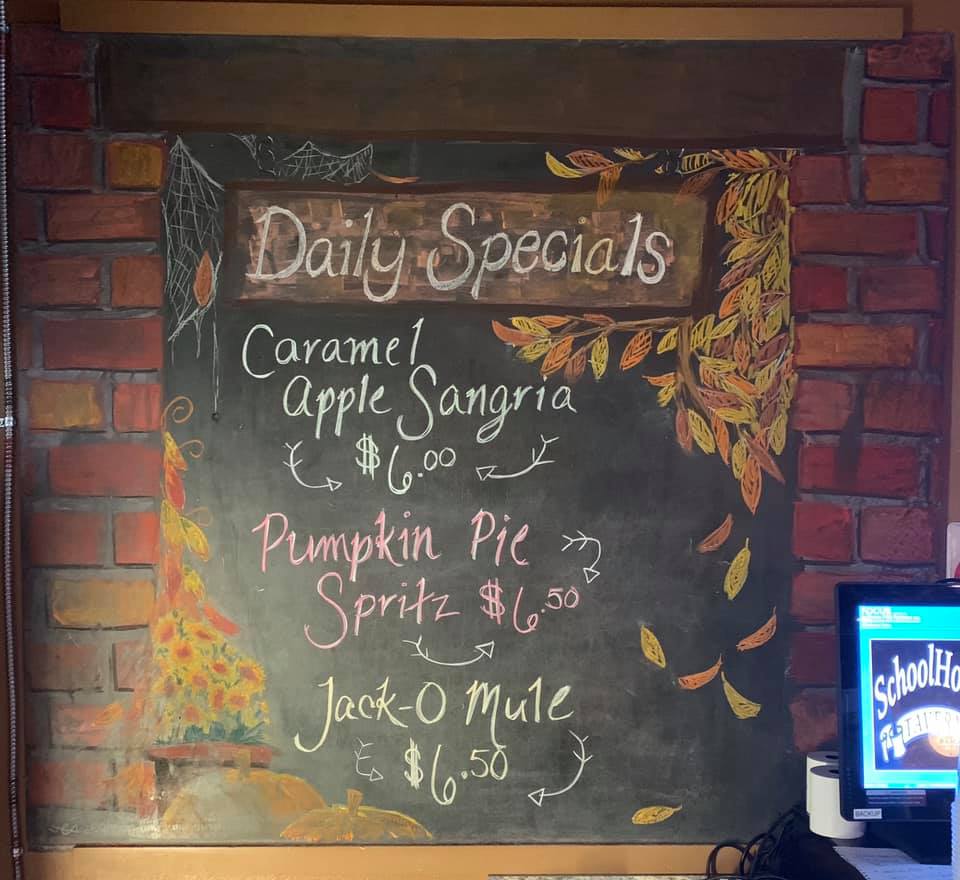 Daily Specials
Caramel
Apple Sangria
$6.00
Pumpkin Pie
Spritz $6.50
Jack-O Mule
$6.50
FOCUS
SchoolHo
TAVER
BACKUP